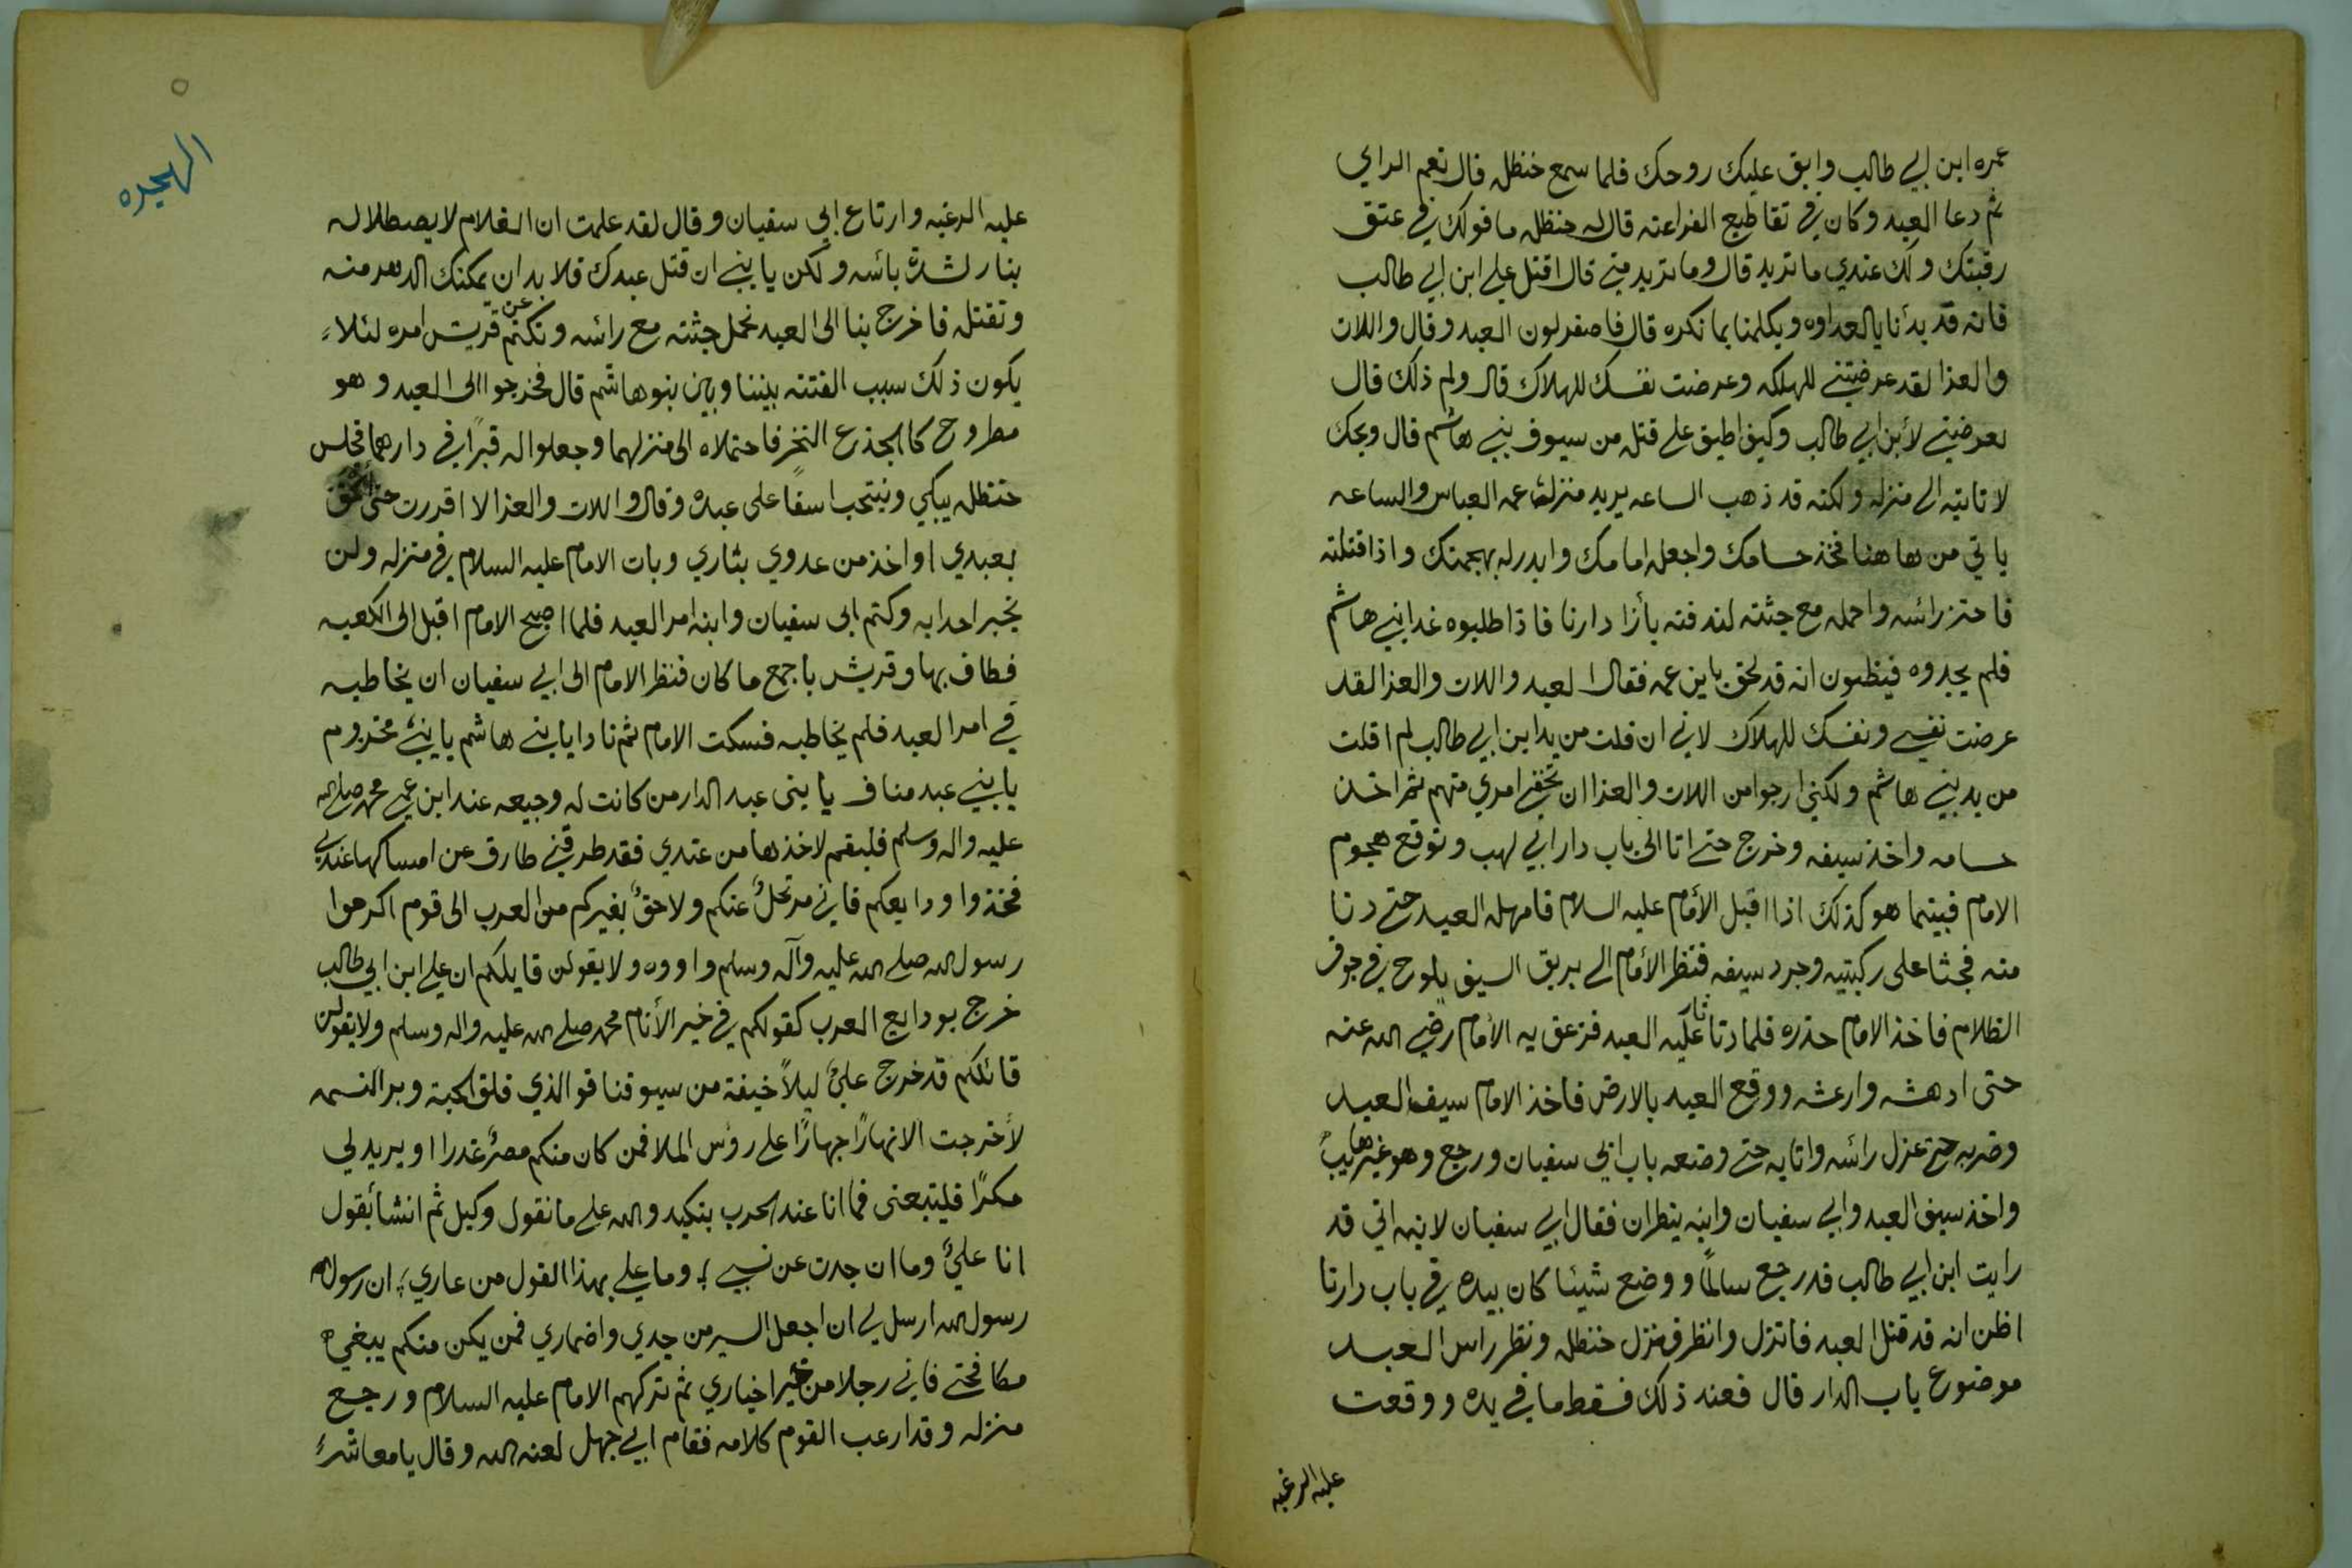 عمره ابن ابي طالب وابق عليك روحك فلما سمع حنظله قال نعم الراي
ثم دعا العبد وكان في تقاطيع الفراعنه قال له حنظله ما قولك في عتق
رقبتك ولك عندي ما تريد قال وما تريد مني قال اقتل علي ابن ابي طالب
فانه قد بدأنا بالعداوه ويكلمنا بما نكره قال فاصفر لون العبد وقال واللات
والعزا لقد عرضتني للهلكه وعرضت نفسك للهلاك قال ولم ذلك قال
تعرضني لأبن ابي طالب وكيف اطيق على قتله من سيوف بني هاشم قال ويحك
لا تاتيه الى منزله ولكنه قد ذهب الساعه يريد منزله عمه العباس والساعه
ياتي من ها هنا فخذ حسامك واجعله امامك وابدر له بهجمتك واذا قتلته
فاحتز رائسه واحمله مع جثته لندفنه بأزا دارنا فاذا طلبوه غدا بني هاشم
فلم يجدوه فيظنون انه قد لحق باين عمه فقال العبد واللات والعزا لقد
عرضت نفسي ونفسك للهلاك لاني ان فلت من يد ابن ابي طالب لم افلت
من يد بني هاشم ولكني ارجوا من اللات والعزا ان تخفي امري منهم ثم اخذ
حسامه واخذ سيفه وخرج حتى اتا الى باب دار ابي لهب وتوقع هجوم
الامام فبينما هو كذلك اذا اقبل الأمام عليه السلام فامهله العبد حتى دنا
منه فجثا على ركبتيه وجرد سيفه فنظر الأمام الى بريق السيف يلوح في جوف
الظلام فاخذ الامام حذره فلما دنا ثار عليه العبد فزعق به الأمام رضي الله عنه
حتى ادهشه وارعشه ووقع العبد بالارض فاخذ الامام سيف العبد
وضربه حتى عزل رائسه واتا به حتى وضعه باب ابي سفيان ورجع وهو غير هايب
واخذ سيف العبد وابي سفيان وابنه ينظران فقال ابي سفيان لابنه اني قد
رايت ابن ابي طالب قد رجع سالمًا ووضع شيئا كان بيده في باب دارنا
اظن انه قد قتل العبد فانزل وانظر فنزل حنظله ونظر راس العبد
موضوع باب الدار قال فعند ذلك فسقط ما في يده ووقعت
عليه الرغبه
الهجره
عليه الرغبه وارتاع ابي سفيان وقال لقد علمت ان الغلام لا يصطلا له
بنار لشدة بائسه ولكن يا بني ان قتل عبدك فلا بد ان يمكنك الدهر منه
وتقتله فاخرج بنا الى العبد نحمل جثته مع رائسه ونكتم عن قريش امره لئلاء
يكون ذلك سبب الفتنه بيننا وبين بنو هاشم قال فخرجوا الى العبد وهو
مطروح كا الجذع النخر فاحتملاه الى منزلهما وجعلوا له قبرًا في دارهما فجلس
حنظله يبكي وينتحب اسفًا على عبده وقال واللات والعزا لا اقدرت حتى الحق
بعبدي او اخذ من عدوي بثاري وبات الامام عليه السلام في منزله ولن
يخبر احدا به وكتم ابى سفيان وابنه امر العبد فلما اصبح الامام اقبل الى الكعبه
فطاف بها وقريش باجمع ما كان فنظر الامام الى ابي سفيان ان يخاطبه
في امر العبد فلم يخاطبه فسكت الامام ثم نادا يا بني هاشم يا بني مخزوم
يا بني عبد مناف يا بنى عبد الدار من كانت له وجيعه عند ابن عمي محمد صلى الله
عليه واله وسلم فليقم لاخذها من عندي فقد طرقني طارق عن امساكها عندي
فخذوا ودايعكم فاني مرتحلٌ عنكم ولاحقٌ بغيركم من العرب الى قوم اكرموا
رسول الله صلى الله عليه وآله وسلم واووه ولا يقولن قايلكم ان علي ابن ابي طالب
خرج بودايع العرب كقولكم في خير الأنام محمد صلى الله عليه واله وسلم ولا يقولن
قائلكم قد خرج عليٌ ليلاً خيفة من سيوفنا فو الذي فلق الحبة وبر النسمه
لأخرجت الا نهارًا جهارًا على رؤس الملا فمن كان منكم مصرٌ غدرا او يريد لي
مكرًا فليتبعنى فما انا عند الحرب بنكيد والله على ما نقول وكيل ثم انشأ يقول
انا عليٌ وما ان جدت عن نسبي ؛ وما علي بهذا القول من عاري ؛ ان رسول الله
رسول الله ارسل لي ان اجعل السير من جدي واضماري فمن يكن منكم يبغي
مكافحتي فاني رجلا من خير اخياري ثم تركهم الامام عليه السلام ورجع
منزله وقد ارعب القوم كلامه فقام ابي جهل لعنه الله وقال يا معاشر